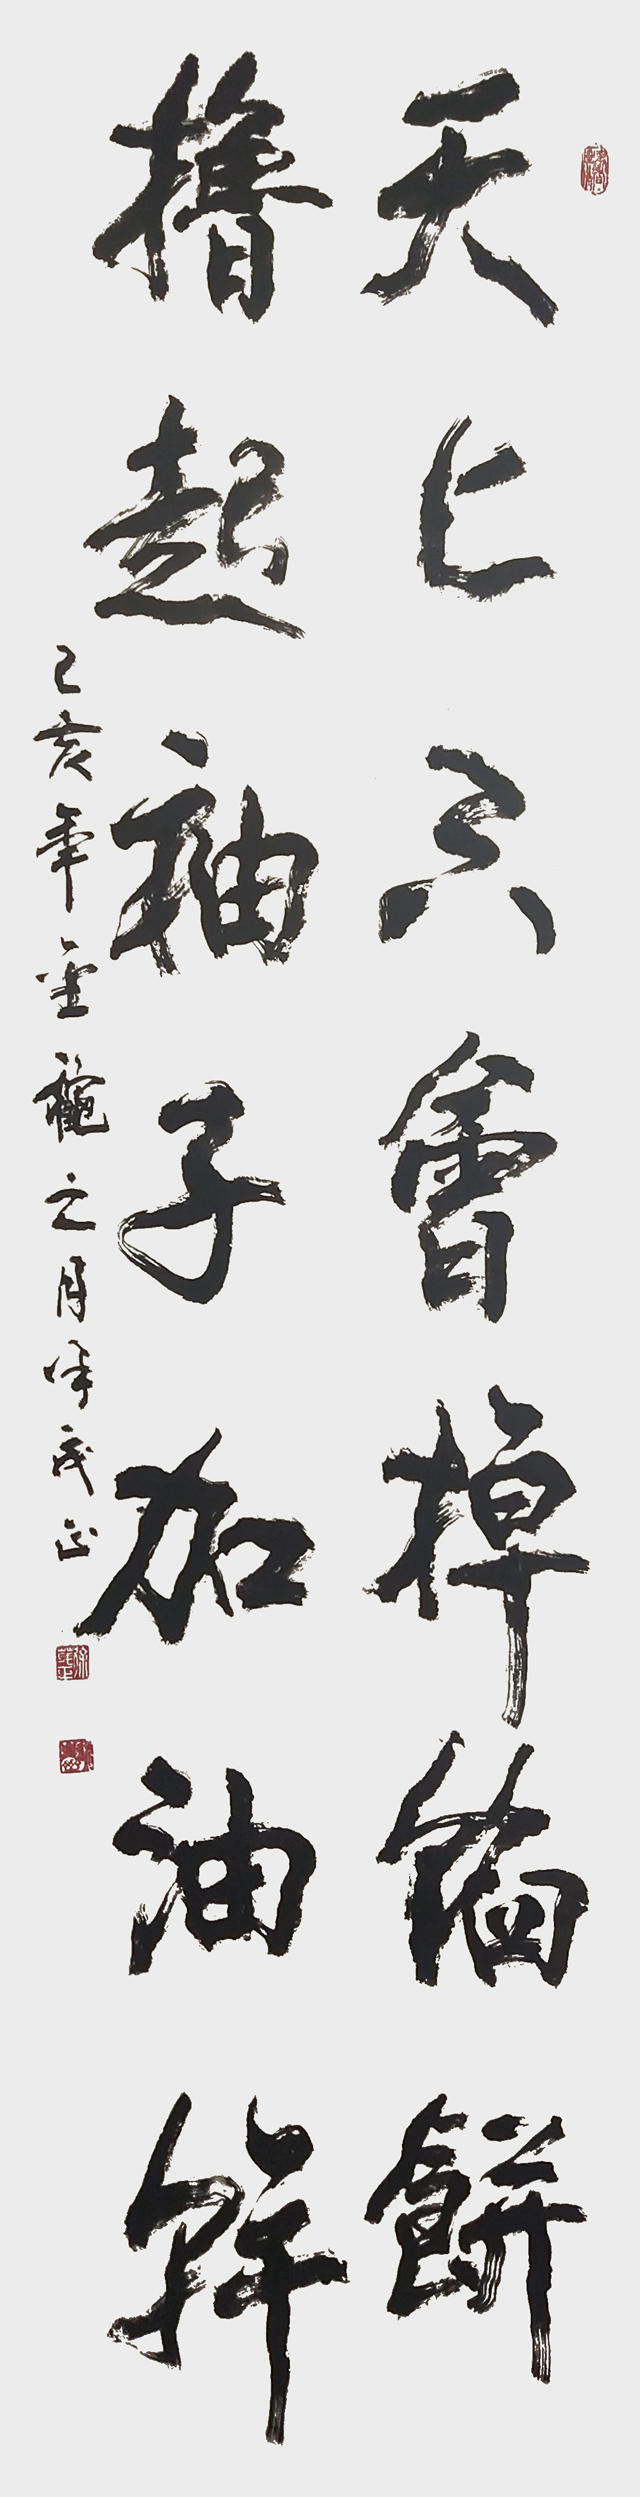 天上不會掉餡餅
擼起袖子加油幹
己亥年金穐之月